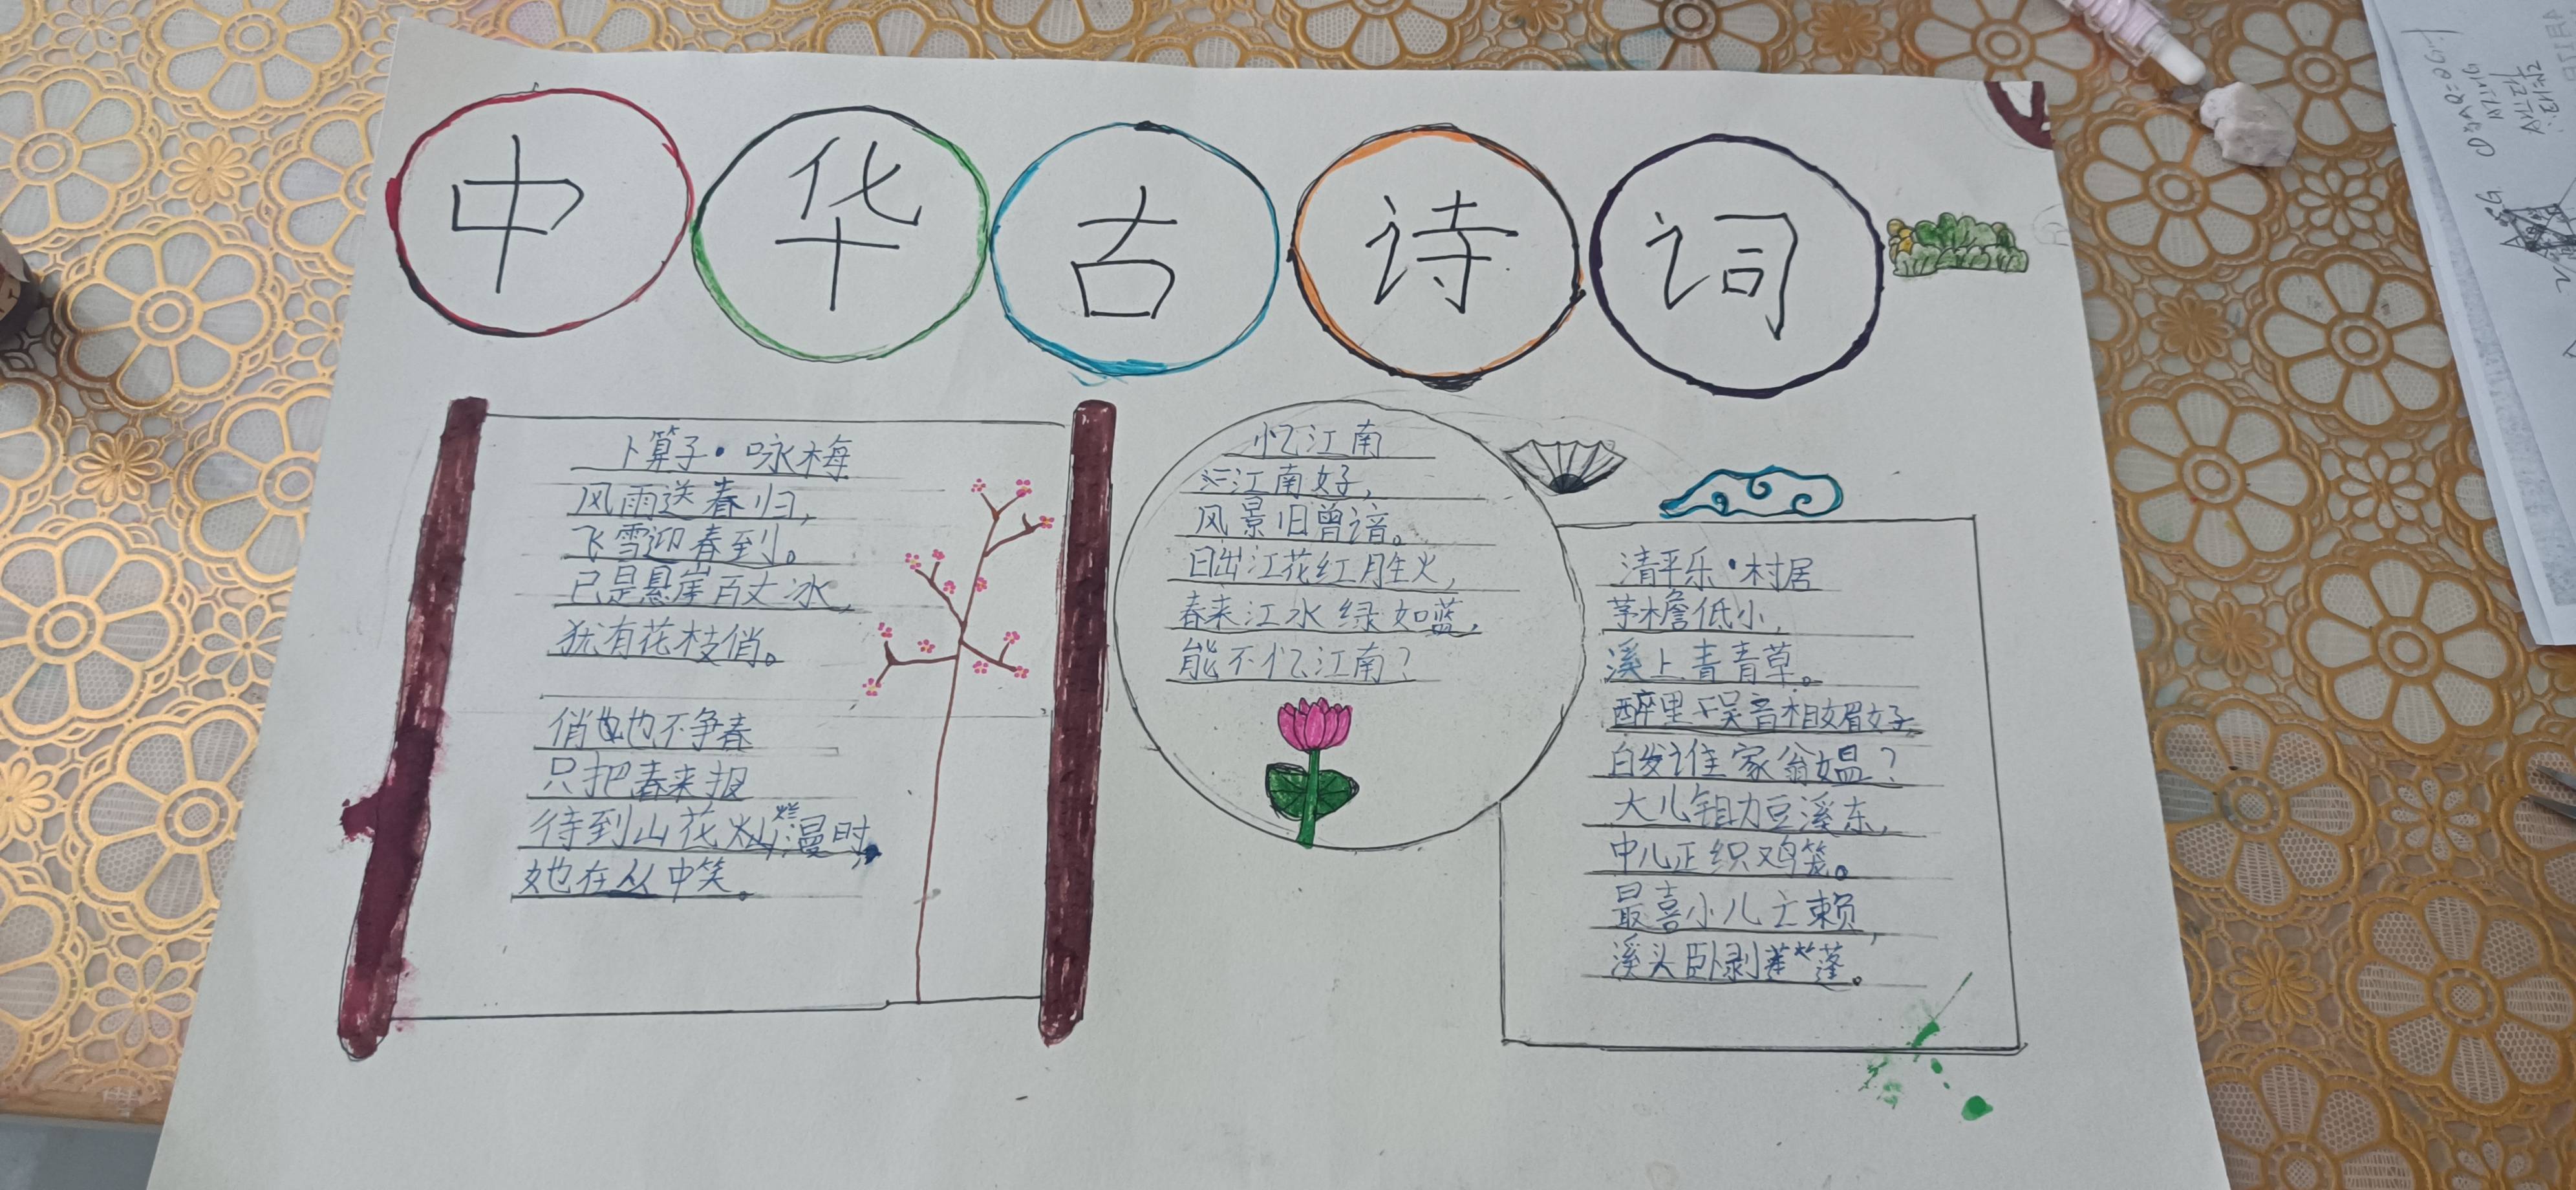 中华古诗词
卜算子·咏梅
风雨送春归,
飞雪迎春到。
已是悬崖百丈冰,
犹有花枝俏。
俏也不争春
只把春来报
待到山花烂漫时,
她在从中笑。
忆江南
江南好,
风景旧曾谙。
日出江花红胜火,
春来江水绿如蓝,
能不忆江南?
清平乐·村居
茅檐低小,
溪上青青草。
醉里吴音相媚好,
白发谁家翁媪?
大儿锄豆溪东,
中儿正织鸡笼。
最喜小儿亡赖,
溪头卧剥莲蓬。